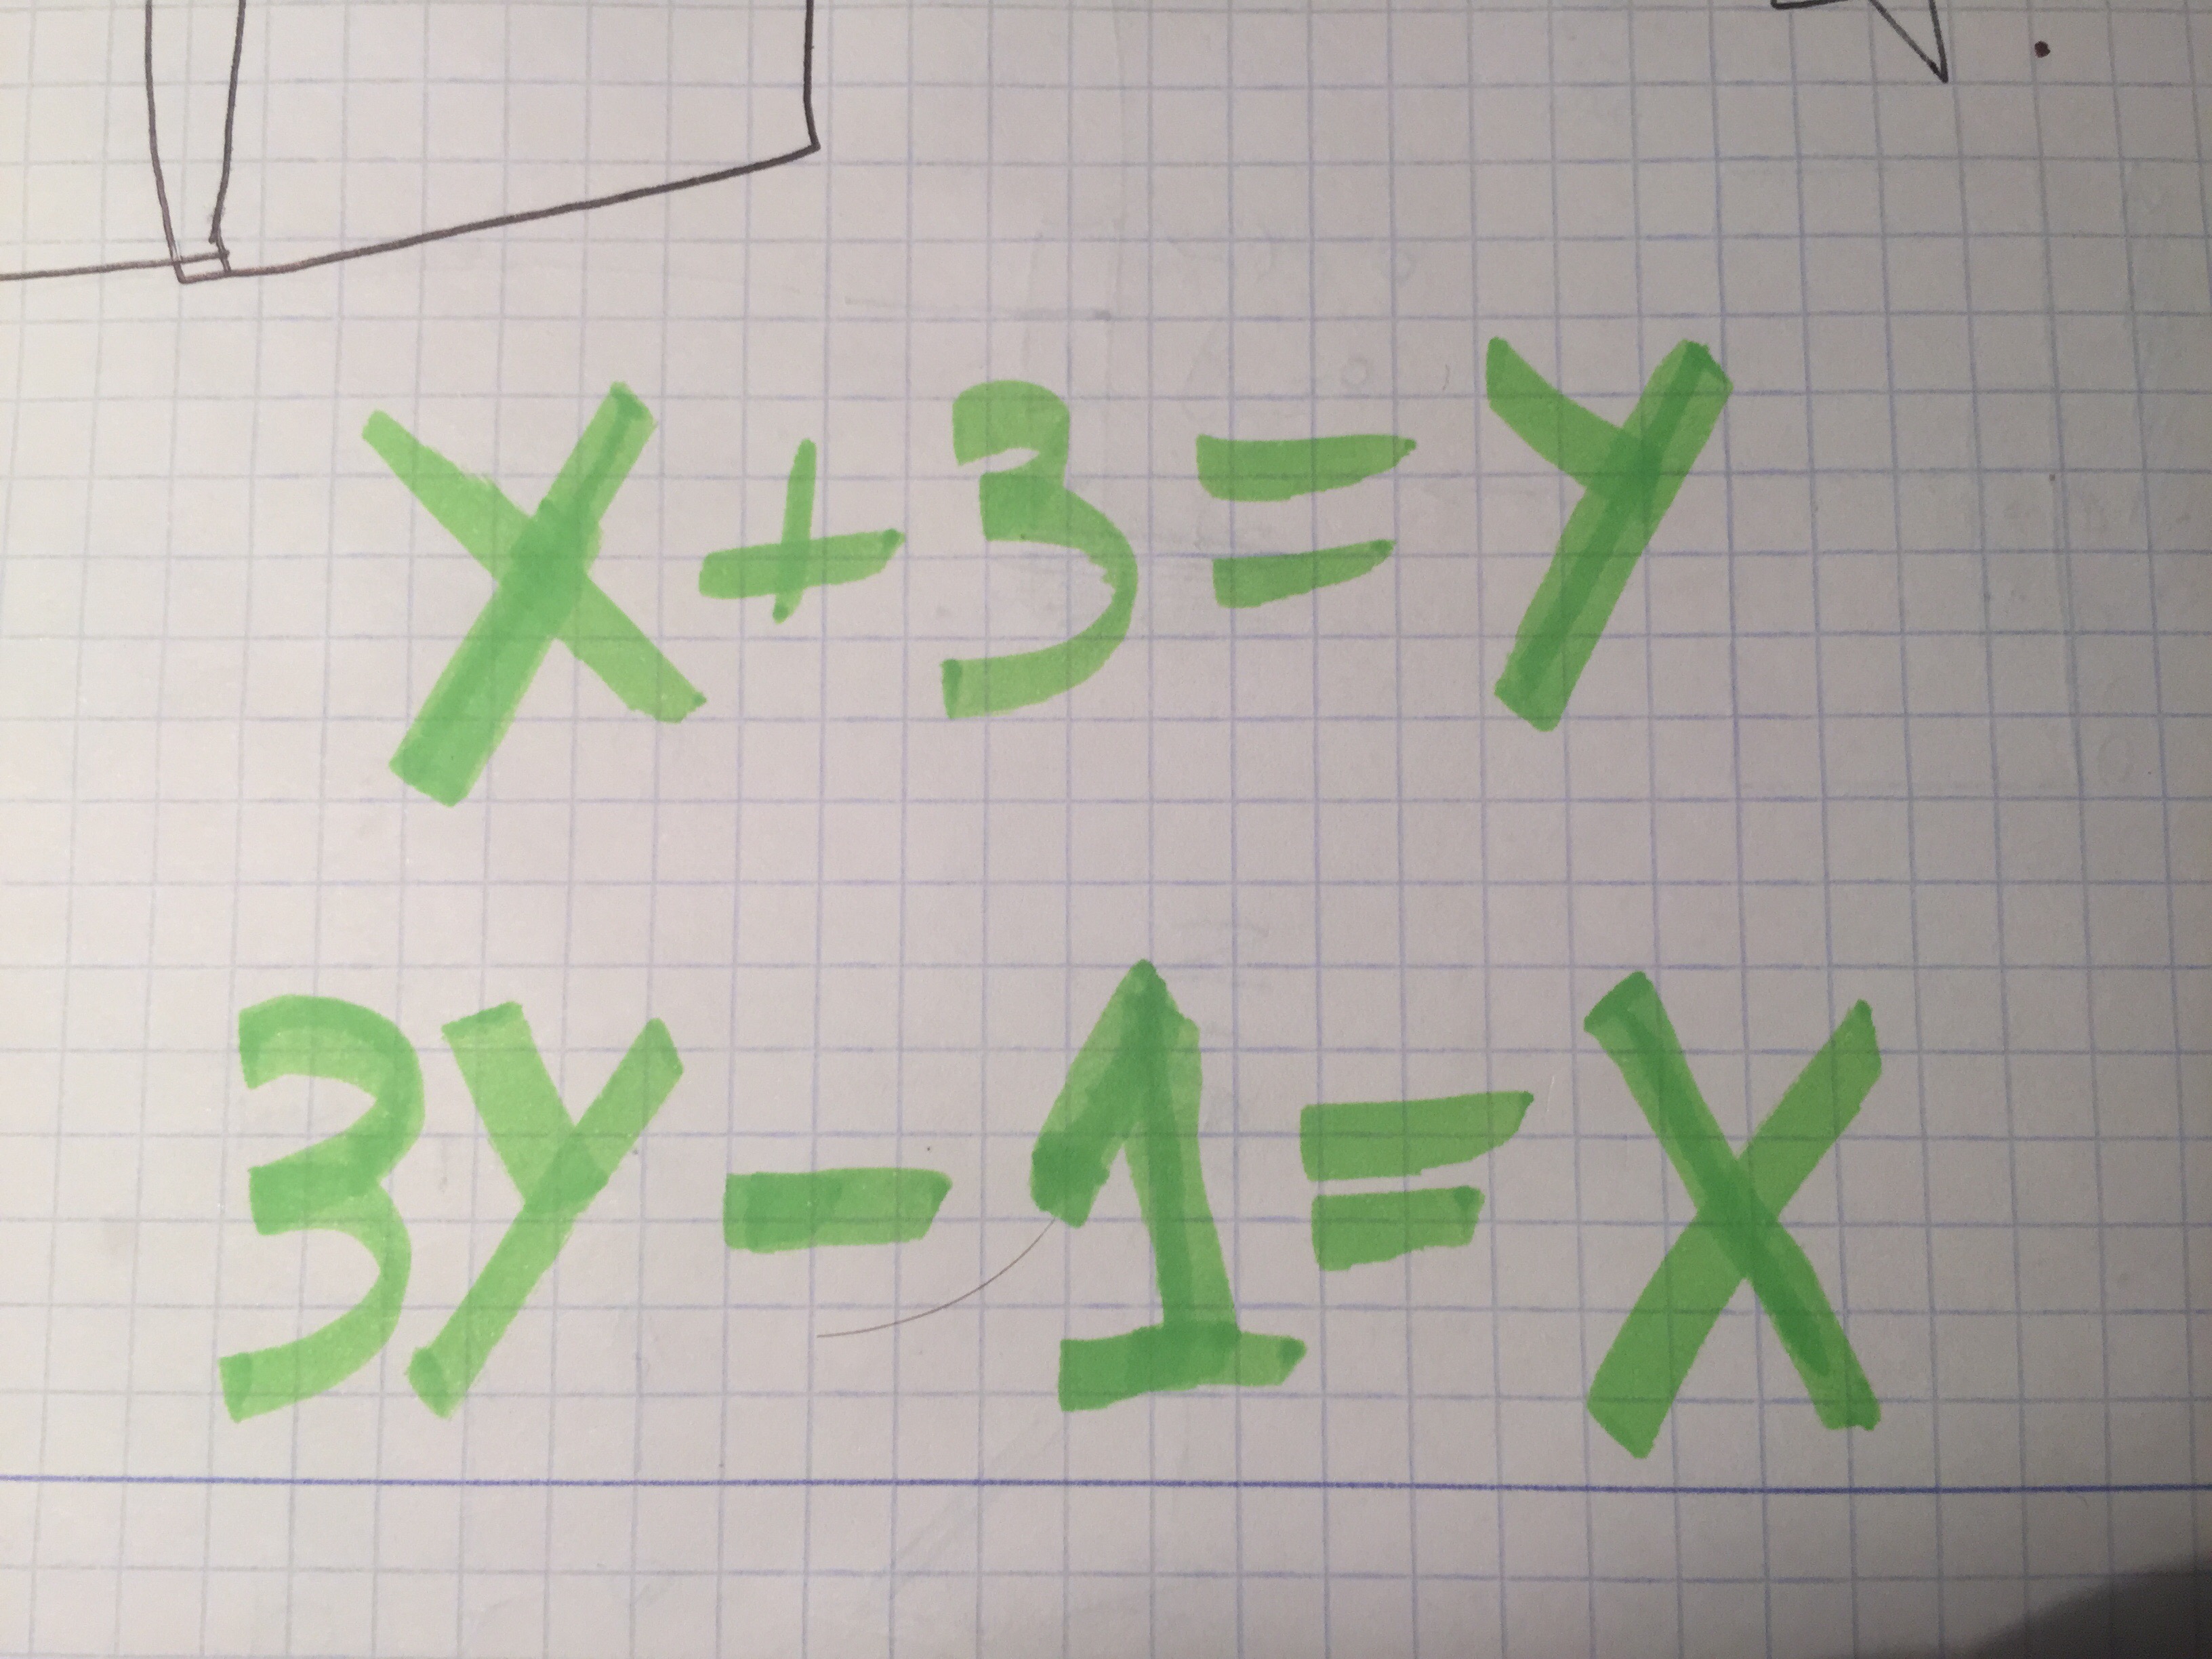 X+3=Y
3Y-1=X